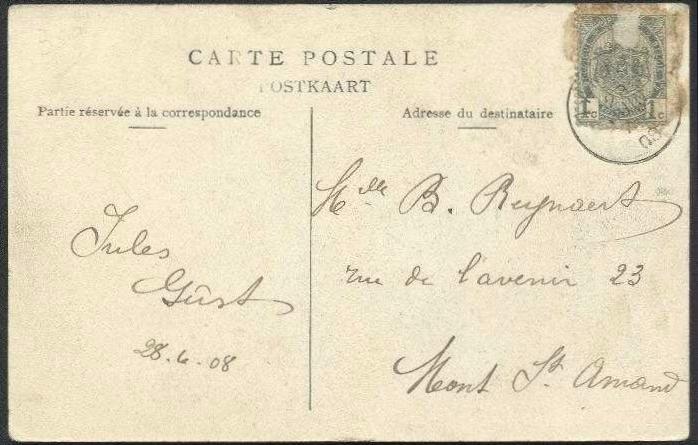 CARTE POSTALE
POSTKAART
Partie réservée à la correspondance
Adresse du destinataire
1c 1c
08
Jules
Gûst
28-6-08
Mlle B. Reynaert
rue de l'avenir 23
Mont St. Amand